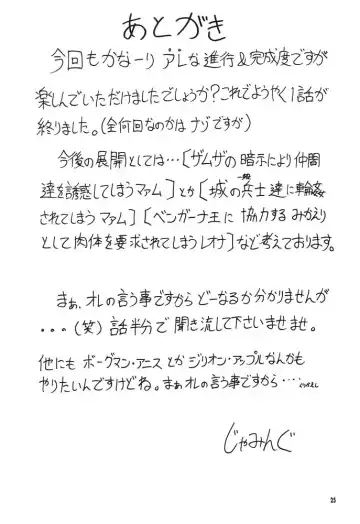 あとがき
今回もかなーり アレな進行&完成度ですが
楽しんでいただけましたでしょうか?これでようやく1話が
終りました。(全何回なのかは ナゾですが)
今後の展開としては…〔ザムザの暗示により仲間
達を誘惑してしまうマァム〕とか〔城の一般兵士達に輪姦
されてしまう マァム〕〔ベンガーナ王に 協力する みかえり
として肉体を要求されてしまうレオナ〕など考えております。
まぁ、オレの言う事ですから どーなるか分かりませんが
・・・(笑) 話半分で 聞き流して下さいませませ。
他にも ボーグマン・アニス とか ジリオン・アップルなんかも
やりたいんですけどね。まぁオレの言う事ですから・・・
じゃみんぐ
25